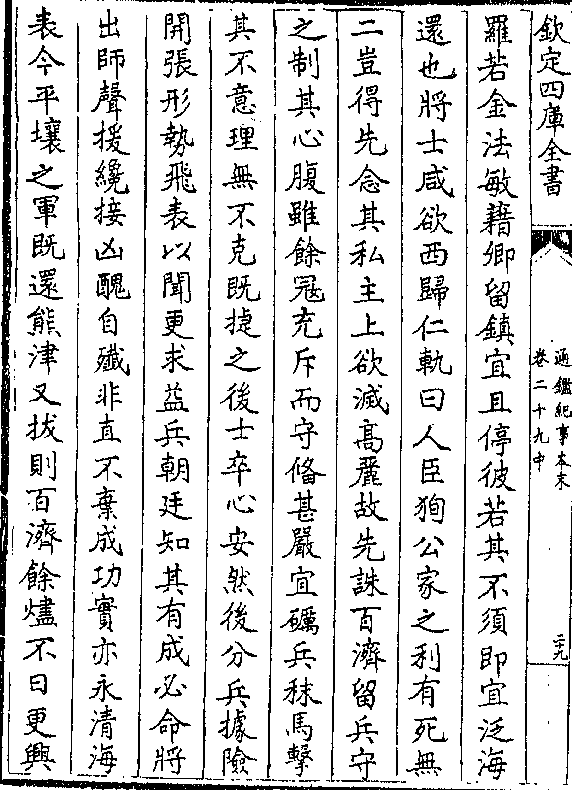 欽定四庫全書
通鑑紀事本末
卷二十九中
羅若金法敏藉卿留鎮宜且停彼若其不須即宜泛海
還也將士咸欲西歸仁軌曰人臣狥公家之利有死無
二豈得先念其私主上欲滅高麗故先誅百濟留兵守
之制其心腹雖餘冦充斥而守備甚嚴宜礪兵秣馬擊
其不意理無不克既捷之後士卒心安然後分兵據險
開張形勢飛表以聞更求益兵朝廷知其有成必命將
出師聲援纔接凶醜自殲非直不棄成功實亦永清海
表今平壤之軍既還熊津又拔則百濟餘燼不日更興